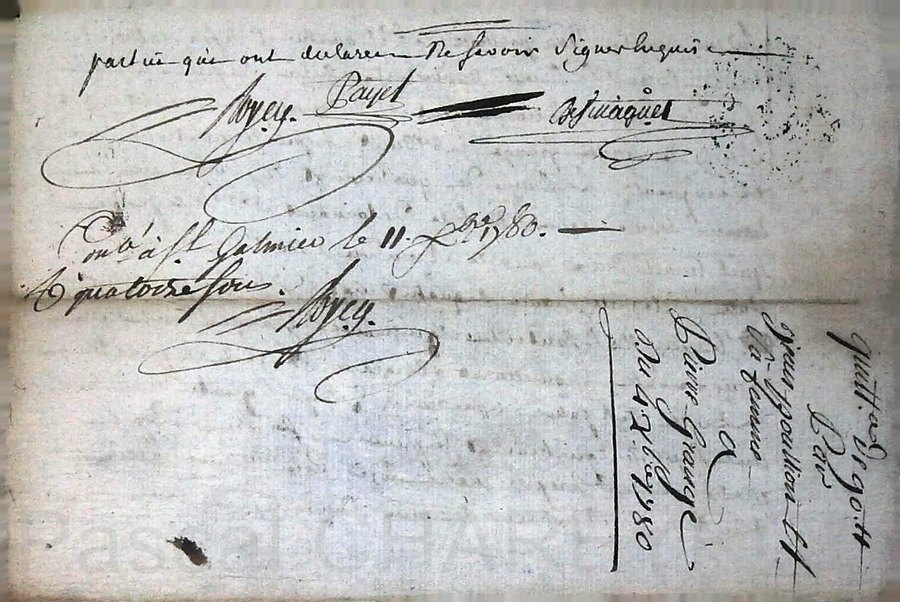 partie qui ont declaree Ne Savoir Signer Enquis
Royey. Payet Desmaquet
Con.lé à St. Galmier le 11. Xbre 1780.
R quatorze Sous.
Royey.
quitt. de 90 tt
Par
Jean poncition et
Sa femme
a
Pierre Grange
Du 4. Xbre 1780
Pascal CHARE